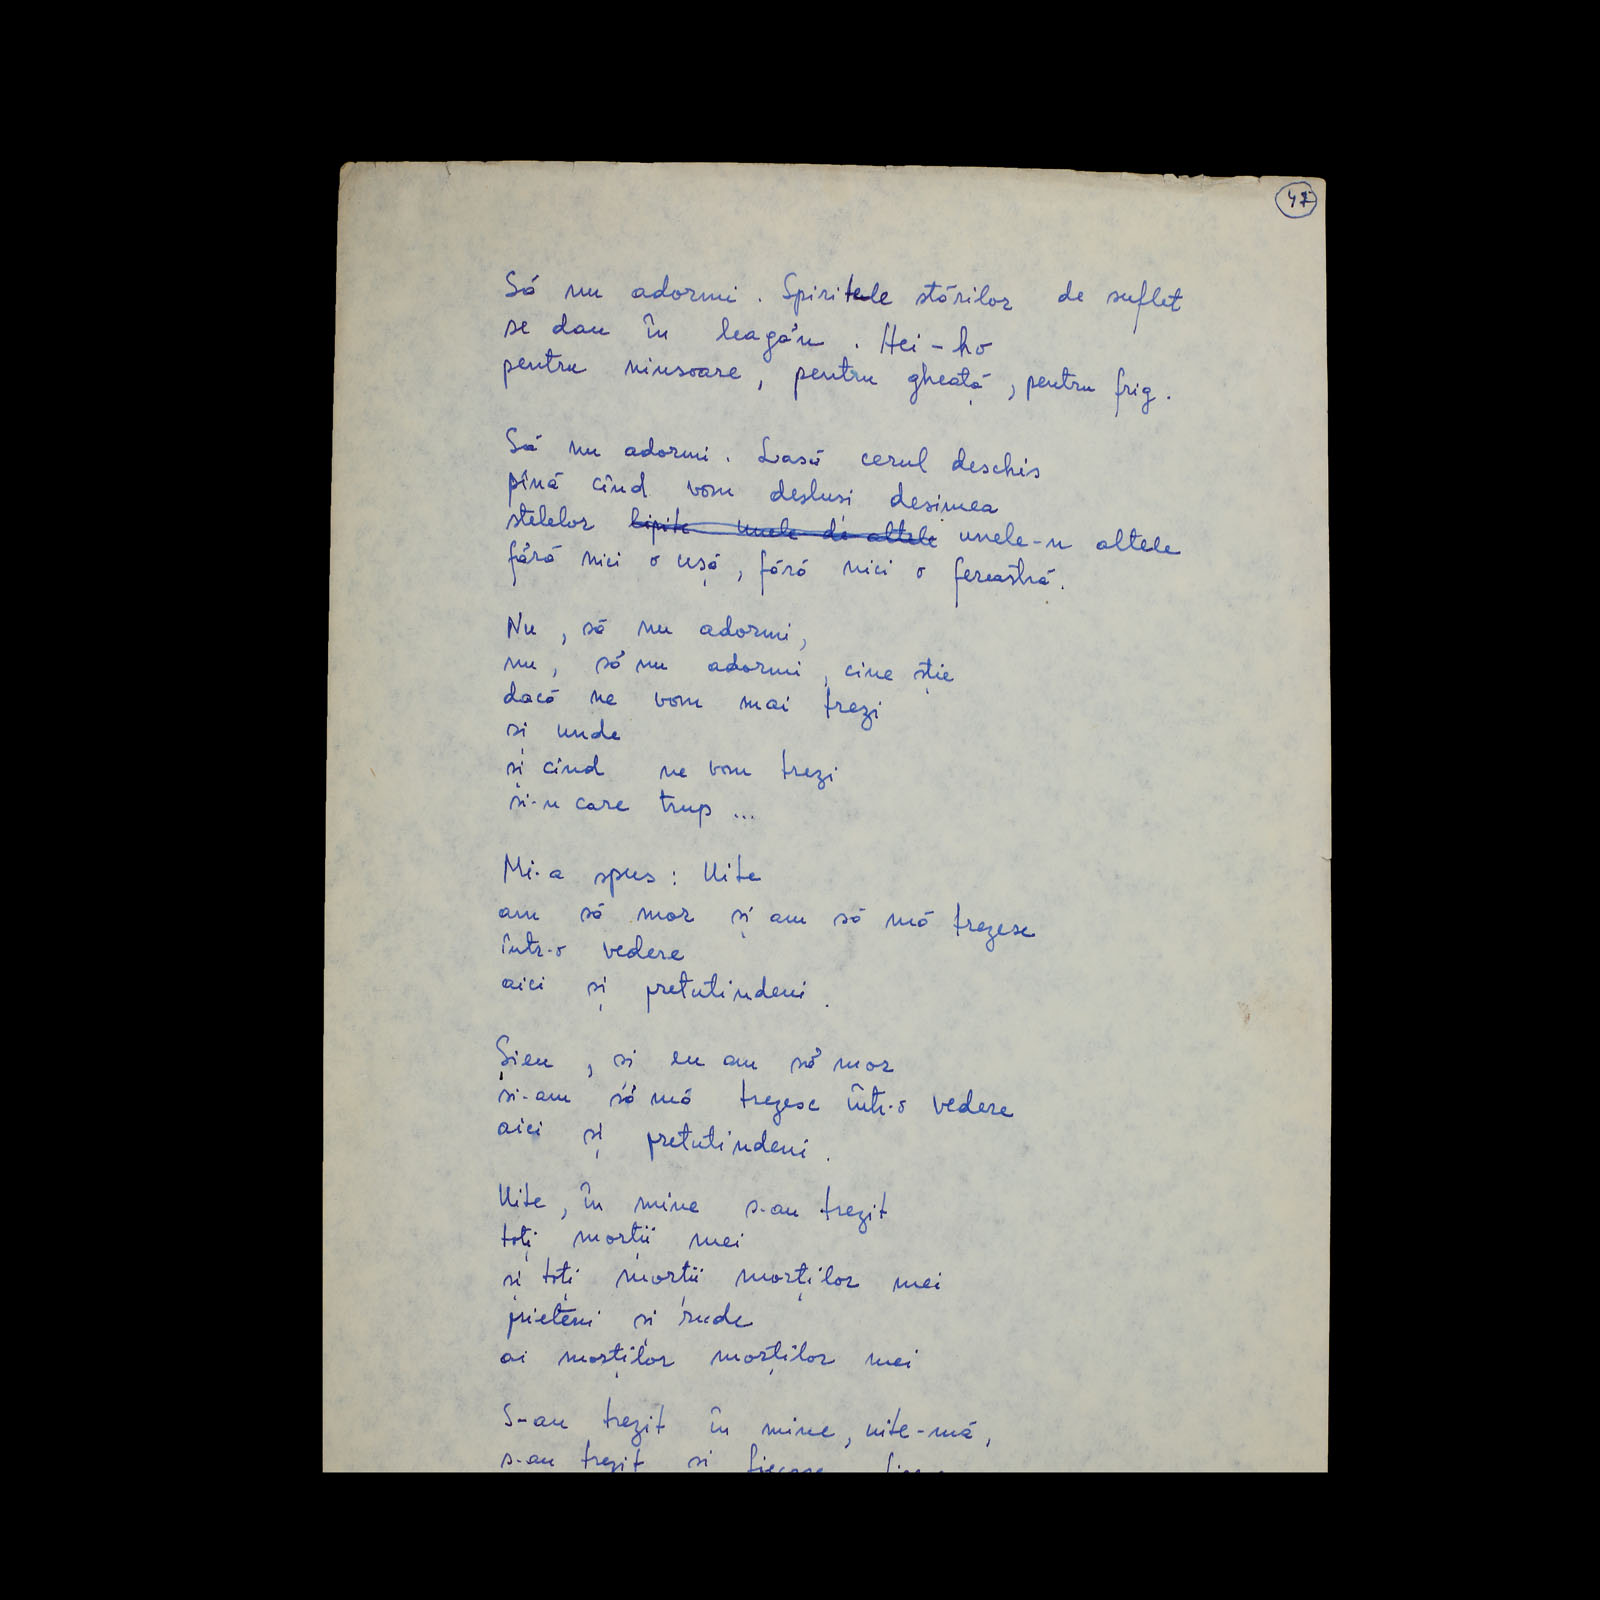 47
Să nu adormi. Spiritele stărilor de suflet
se dau în leagăn. Hei-ho
pentru ninsoare, pentru gheață, pentru frig.
Să nu adormi. Lasă cerul deschis
pînă cînd vom desluși desimea
stelelor lipite unele de altele unele-n altele
fără nici o ușă, fără nici o fereastră.
Nu, să nu adormi,
nu, să nu adormi, cine știe
dacă ne vom mai trezi
și unde
și cînd ne vom trezi
și-n care trup...
Mi-a spus: Uite
am să mor și am să mă trezesc
într-o vedere
aici și pretutindeni.
Și eu, și eu am să mor
și-am să mă trezesc într-o vedere
aici și pretutindeni.
Uite, în mine s-au trezit
toți morții mei
și toți morții morților mei
prieteni și rude
ai morților morților mei
S-au trezit în mine, uite-mă,
s-au trezit și